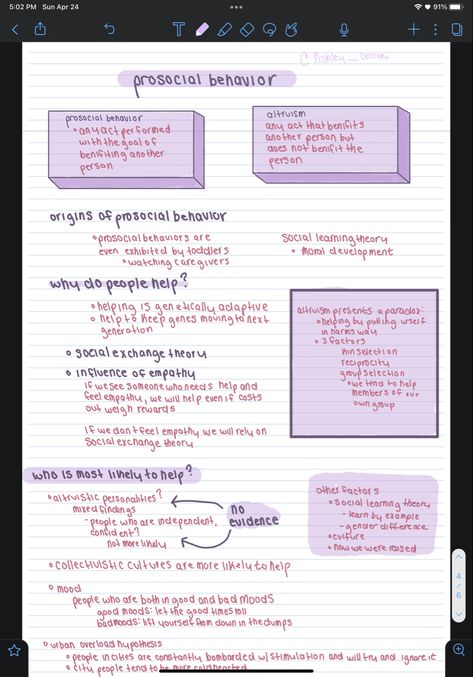 5:02 PM Sun Apr 24
91%
T
prosocial behavior
prosocial behavior
any act performed
with the goal of
benifiting another
person
altruism
any act that benifits
another person but
does not benifit the
person
origins of prosocial behavior
prosocial behaviors are
even exhibited by toddlers
watching caregivers
social learning theory
moral development
why do people help?
helping is genetically adaptive
help to keep genes moving to next
generation
social exchange theory
influence of empathy
if we see someone who needs help and
feel empathy, we will help even if costs
out weigh rewards
if we don't feel empathy we will rely on
social exchange theory
altruism presents a paradox:
helping by putting urself
in harms way
3 factors
kin selection
reciprocity
group selection
we tend to help
members of our
own group
who is most likely to help?
altruistic personalities?
mixed findings
- people who are independent,
confident?
not more likely
no
evidence
other factors
social learning theory
- learn by example
- gender difference
culture
how we were raised
collectivistic cultures are more likely to help
mood
people who are both in good and bad moods
good moods: let the good times roll
bad moods: lift yourself from down in the dumps
urban overload hypothesis
people in cities are constantly bombarded w/ stimulation and will try and ignore it
city people tend to be more coldhearted
4
6